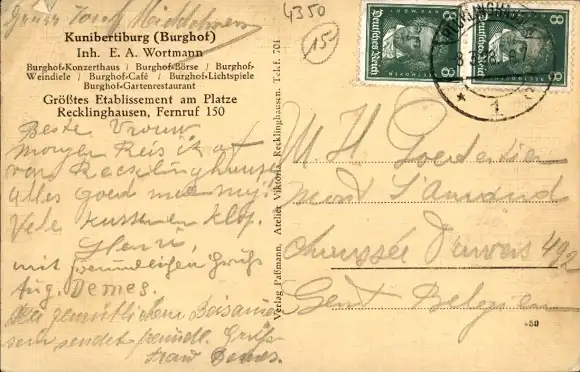 Gruss Josef
4350
15
Kunibertiburg (Burghof)
Inh. E. A. Wortmann
Burghof-Konzerthaus / Burghof-Börse / Burghof-
Weindiele / Burghof-Café / Burghof-Lichtspiele
Burghof-Gartenrestaurant
Größtes Etablissement am Platze
Recklinghausen, Fernruf 150
Beste Vrouw
morgen Reis ik af
van Recklinghausen
Alles goed met mij
Vele kussen
Henri,
mit freundlichem Gruß
Aug. Demes.
Bei gemütlichem Beisammen
sein sendet freundl. Grüße
Frau Demes.
Verlag Paßmann, Atelier Viktoria, Recklinghausen. Telef. 701
Deutsches Reich 8 8 BEETHOVEN
Deutsches Reich 8 8 BEETHOVEN
1
M. H.
Mont S'Amand
Chaussée 492
Gent Belgien
+80